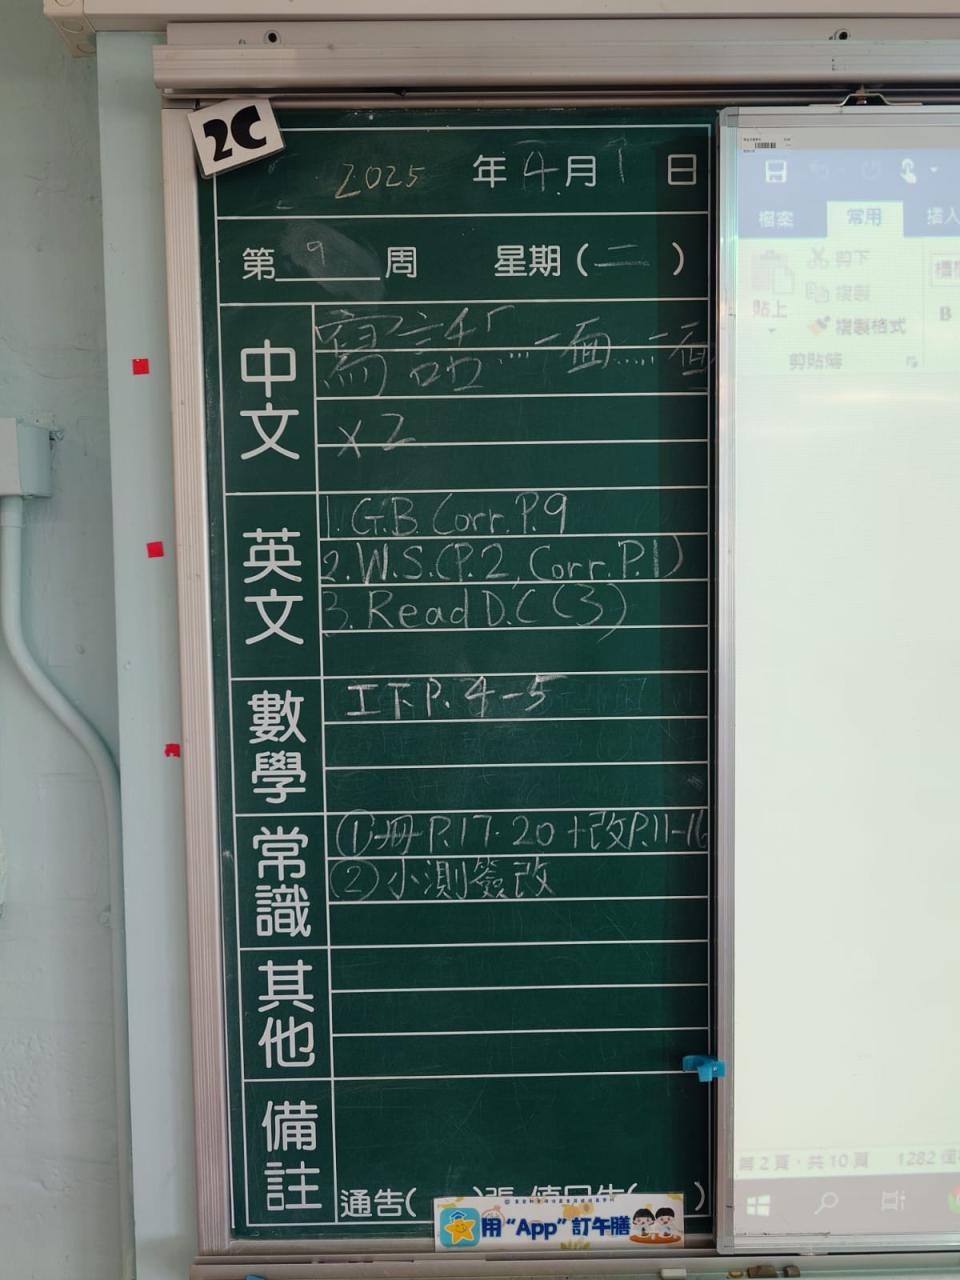 2C
2025 年 4 月 1 日
第 9 周 星期(二)
中文
寫話 .... 一面 .... 一面
x 2
英文
1. G.B. Corr. P.9
2. W.S.(P.2, Corr. P.1)
3. Read D.C (3)
數學
工下P. 4-5
常識
①冊P.17-20+改P.11-16
②小測簽改
其他
備註
通告( )張
用“App”訂午膳
檔案 常用 插入
貼上
剪下
複製
複製格式
剪貼簿
B
第 2 頁，共 10 頁 1282